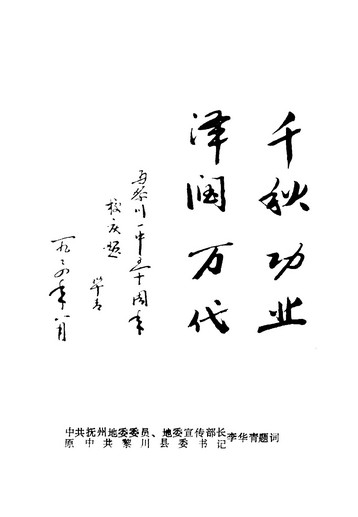 千秋功业
泽润万代
为黎川一中五十周年
校庆题
华青
一九九四年八月
中共抚州地委委员、地委宣传部长
原中共黎川县委书记
李华青题词